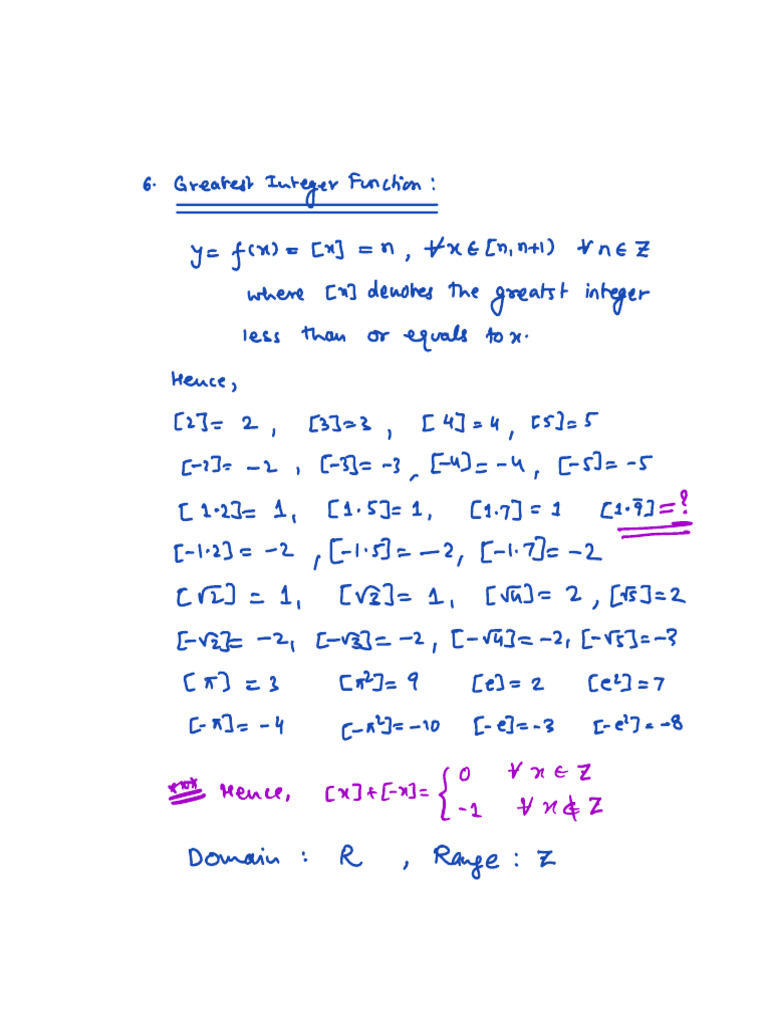 6. Greatest Integer Function :
y = f(x) = [x] = n , ∀ x ∈ [n, n+1) ∀ n ∈ Z
where [x] denotes the greatst integer
less than or equals to x.
Hence,
[2] = 2 , [3] = 3 , [4] = 4 , [5] = 5
[-2] = -2 , [-3] = -3 , [-4] = -4 , [-5] = -5
[1.2] = 1, [1.5] = 1, [1.7] = 1 [1.9̄] = ?
[-1.2] = -2 , [-1.5] = -2, [-1.7] = -2
[√2] = 1, [√3] = 1, [√4] = 2 , [√5] = 2
[-√2] = -2, [-√3] = -2, [-√4] = -2, [-√5] = -3
[π] = 3 [π²] = 9 [e] = 2 [e²] = 7
[-π] = -4 [-π²] = -10 [-e] = -3 [-e²] = -8
*** Hence, [x] + [-x] = { 0 ∀ x ∈ Z
-1 ∀ x ∉ Z
Domain : R , Range : Z